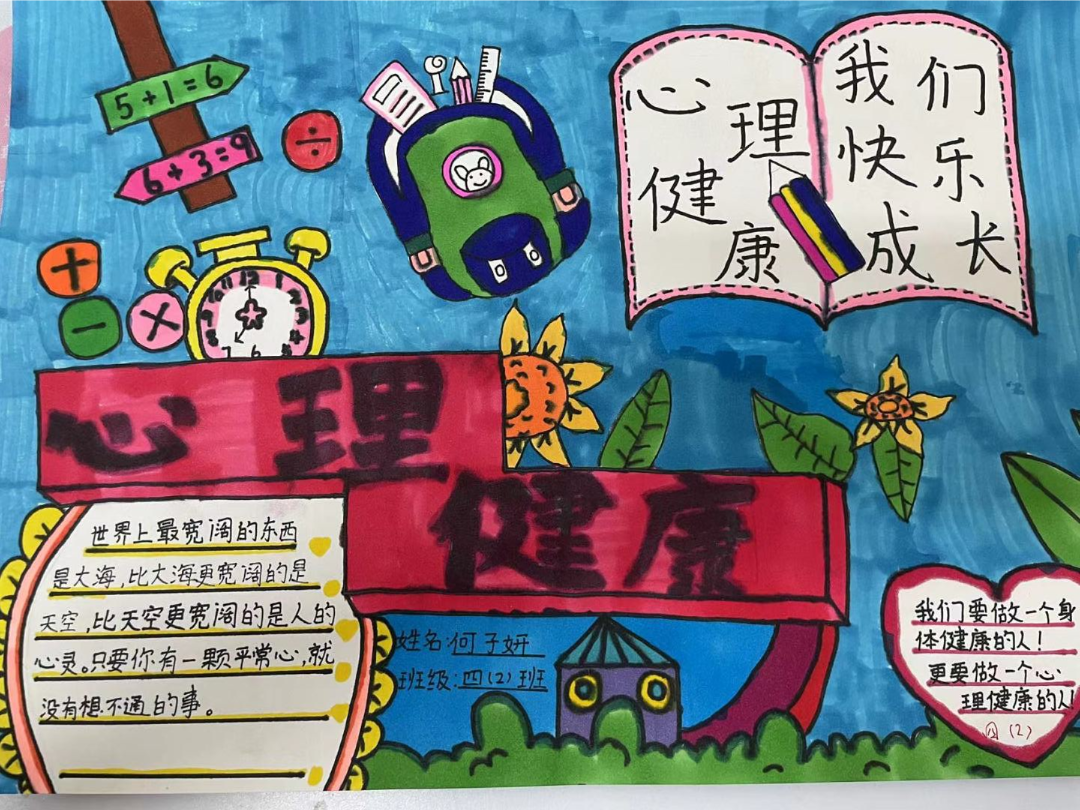 5+1=6
6+3=9
÷
+
−
×
12
心理
健康
我们
快乐
成长
心理
健康
世界上最宽阔的东西
是大海，比大海更宽阔的是
天空，比天空更宽阔的是人的
心灵。只要你有一颗平常心，就
没有想不通的事。
姓名：何子妍
班级：四（2）班
我们要做一个身
体健康的人！
更要做一个心
理健康的人！
（2）